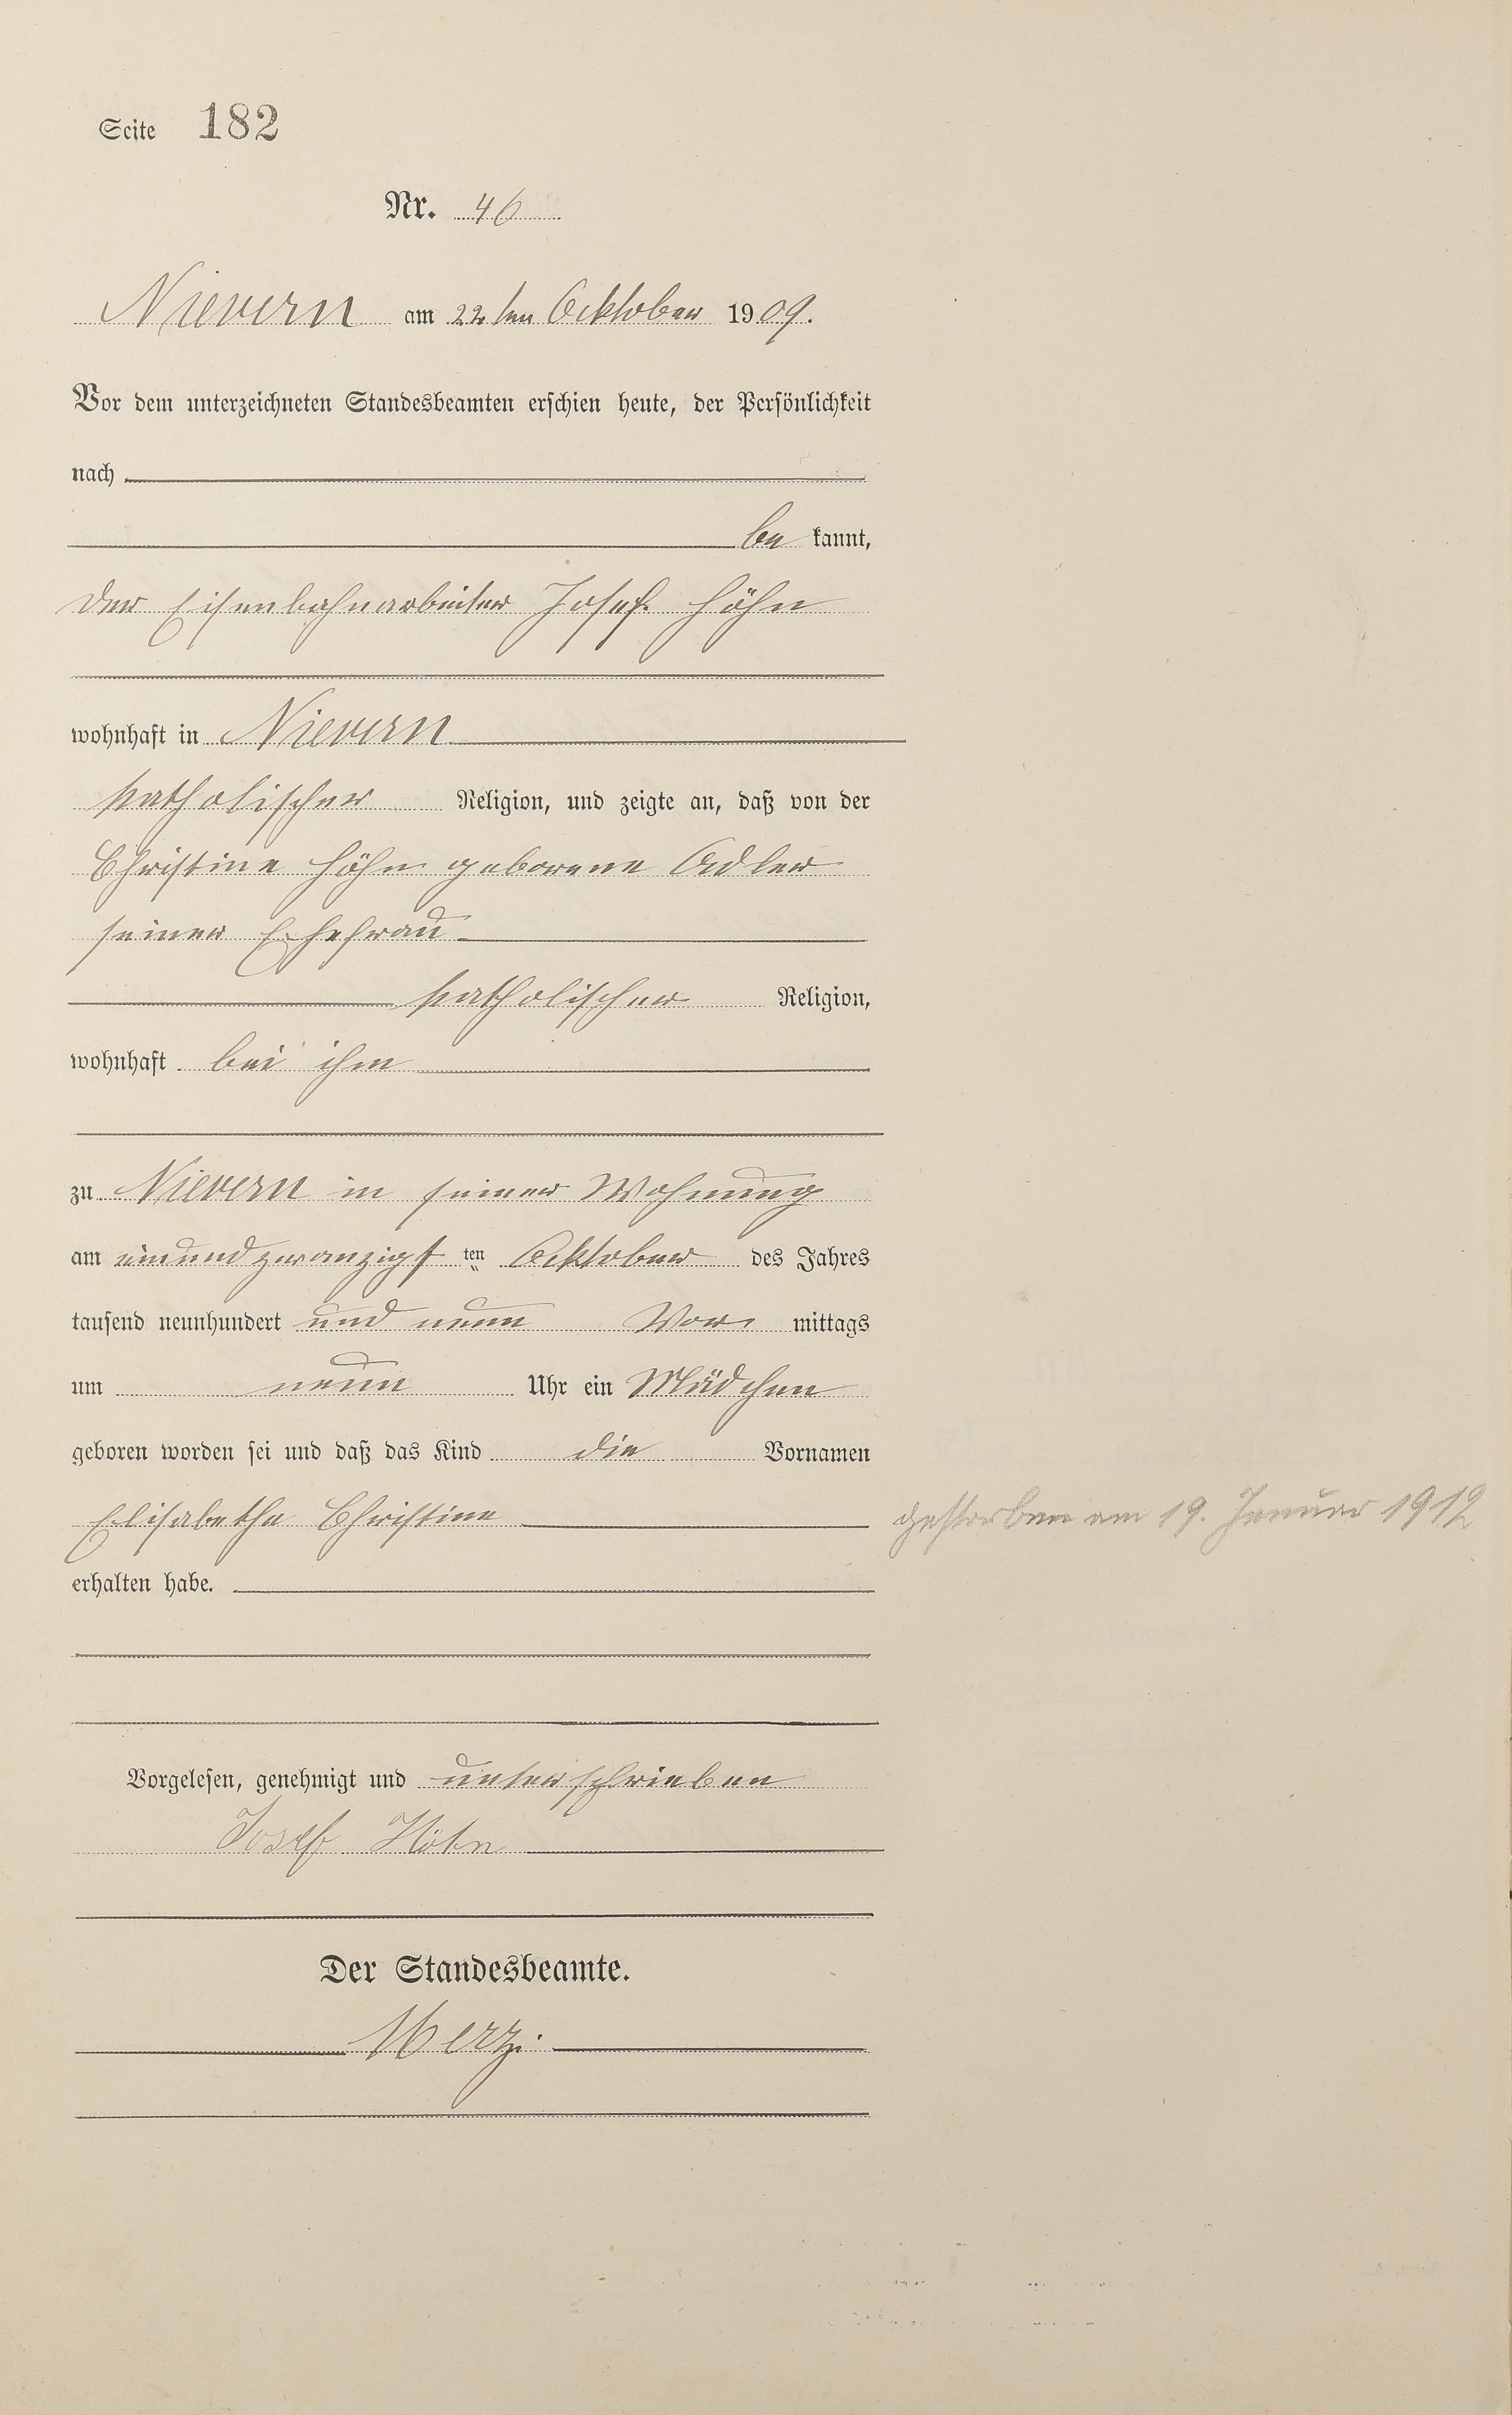 Seite 182
Nr. 46
Nievern am 22ten Ocktober 1909.
Vor dem unterzeichneten Standesbeamten erschien heute, der Persönlichkeit
nach
be kannt,
der Eisenbahnarbeiter Josef Höhn
wohnhaft in Nievern
katholischer Religion, und zeigte an, daß von der
Christine Höhn geborene Adler
seiner Ehefrau
katholischer Religion,
wohnhaft bei ihm
zu Nievern in seiner Wohnung
am einundzwanzigsten Ocktober des Jahres
tausend neunhundert und neun Vor mittags
um neun Uhr ein Mädchen
geboren worden sei und daß das Kind die Vornamen
Elisabetha Christine
gestorben am 19. Januar 1912
erhalten habe.
Vorgelesen, genehmigt und unterschrieben
Josef Höhn
Der Standesbeamte.
Merz.